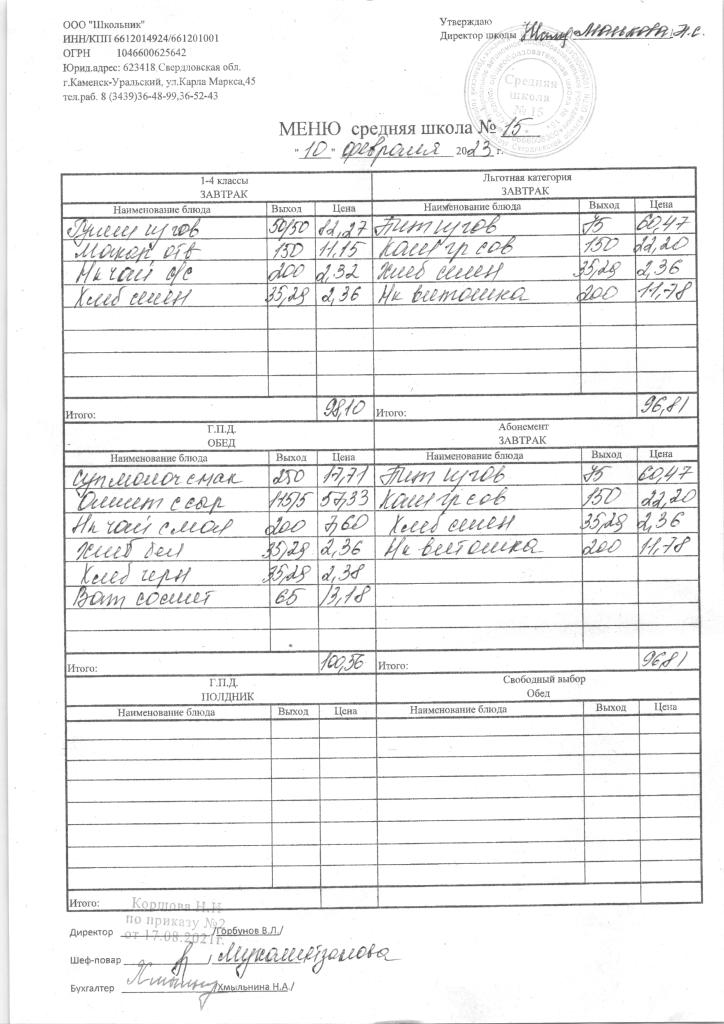 ООО "Школьник"
ИНН/КПП 6612014924/661201001
ОГРН 1046600625642
Юрид.адрес: 623418 Свердловская обл.
г.Каменск-Уральский, ул.Карла Маркса,45
тел.раб. 8 (3439)36-48-99,36-52-43
Утверждаю
Директор школы
Средняя
школа
№ 15
МЕНЮ средняя школа № 15
"10" февраля 2023 г.
1-4 классы
ЗАВТРАК
Наименование блюда Выход Цена
Гуляш изгов 50/50 82,27
Макар. отв 150 11,15
Нк чай с/с 200 2,32
Хлеб пшен 35,29 2,36
Итого: 98,10
Льготная категория
ЗАВТРАК
Наименование блюда Выход Цена
75 60,47
Каша гр 150 22,20
Хлеб пшен 35,29 2,36
Нк витошка 200 11,78
Итого: 96,81
Г.П.Д.
ОБЕД
Наименование блюда Выход Цена
Суп молоч с мак 250 17,71
Омлет с сыр 115/5 57,33
Нк чай с мол 200 7,60
Хлеб бел 35,29 2,36
Хлеб черн 35,29 2,38
Бат 65 13,18
Итого: 100,56
Абонемент
ЗАВТРАК
Наименование блюда Выход Цена
75 60,47
Каша гр 150 22,20
Хлеб пшен 35,29 2,36
Нк витошка 200 11,78
Итого: 96,81
Г.П.Д.
ПОЛДНИК
Наименование блюда Выход Цена
Итого:
Свободный выбор
Обед
Наименование блюда Выход Цена
Коршова Н.И
по приказу №2
от 17.08.2021г.
Директор /Горбунов В.Л./
Шеф-повар / Мухаметзанова
Бухгалтер /Хмыльнина Н.А./